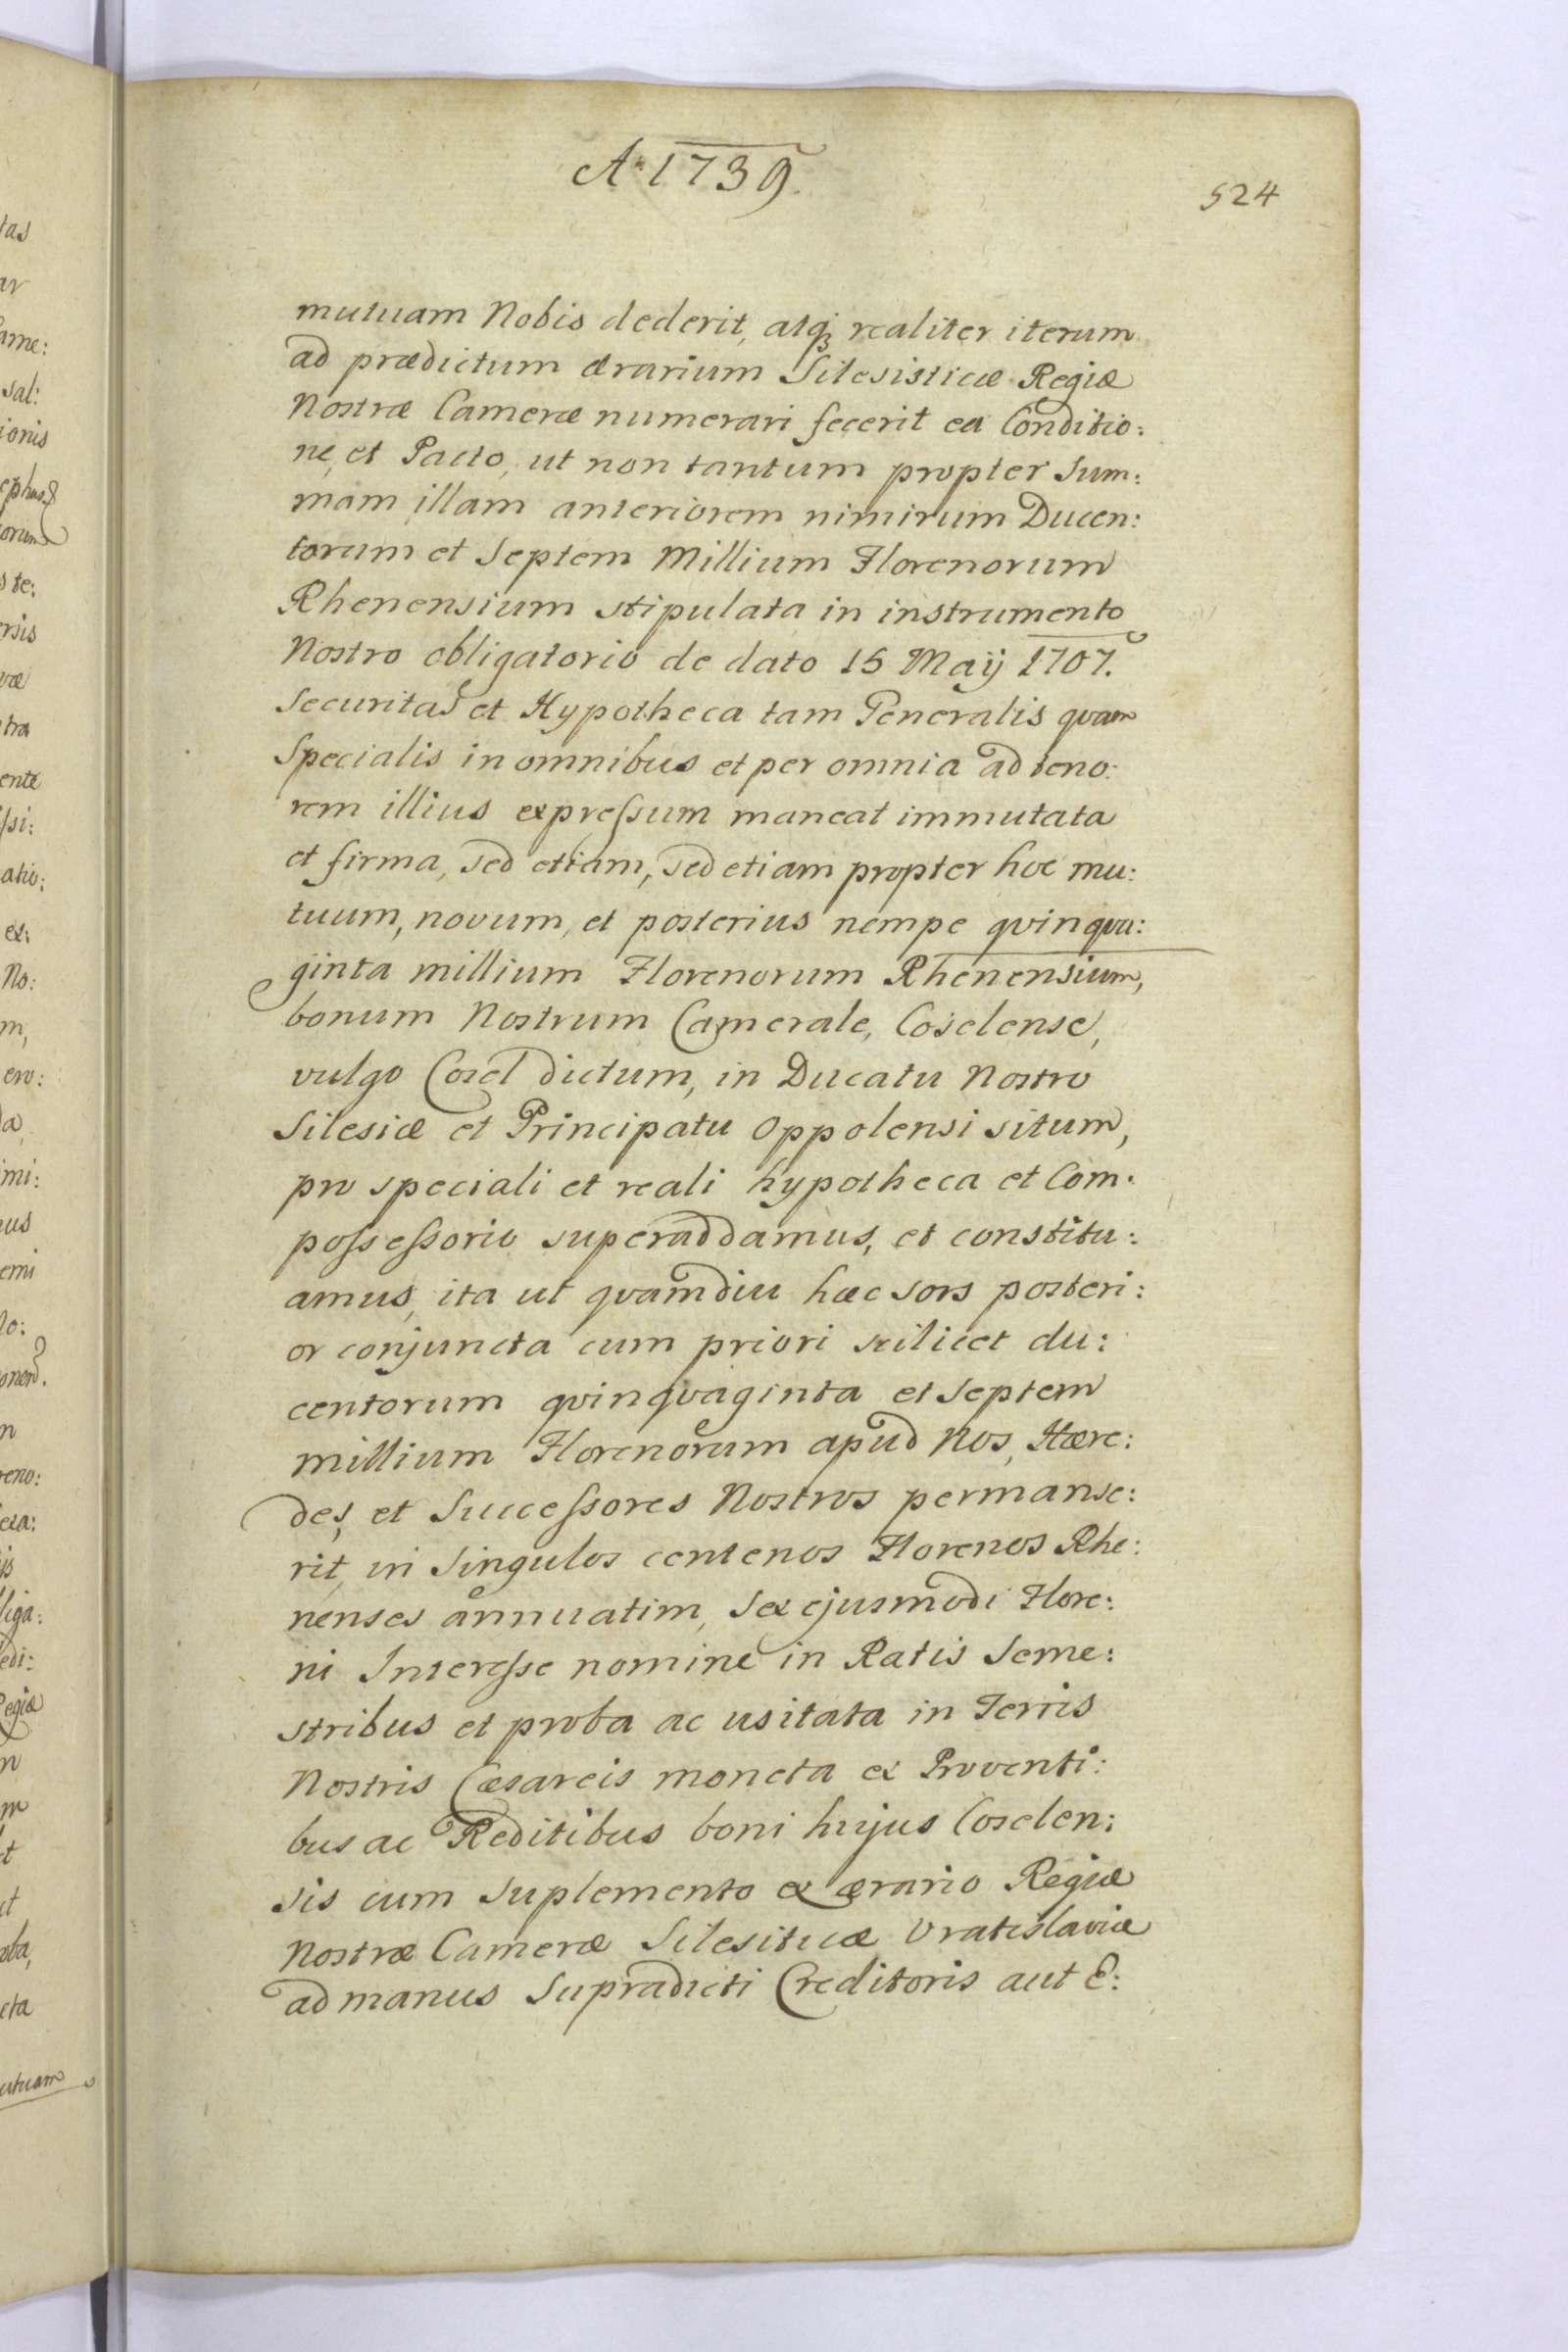 A: 1739.
524
mutuam Nobis dederit, atq; realiter iterum
ad prædictum ærarium Silesisticæ Regiæ
Nostræ Cameræ numerari fecerit ea Conditio:
ne, et Pacto, ut non tantum propter Sum:
mam illam anteriorem nimirum Ducen:
torum et Septem Millium Florenorum
Rhenensium stipulata in instrumento
Nostro obligatorio de dato 15 Maÿ 1707.
Securitas et Hypotheca tam Generalis quam
Specialis in omnibus et per omnia ad teno:
rem illius expressum maneat immutata
et firma, sed etiam, sed etiam propter hoc mu:
tuum, novum, et posterius nempe qvinqva:
ginta millium Florenorum Rhenensium,
bonum Nostrum Camerale, Coselense,
vulgo Cosel dictum, in Ducatu Nostro
Silesiæ et Principatu Oppolensi situm,
pro speciali et reali hypotheca et Com:
possessorio superaddamus, et constitu:
amus, ita ut qvamdiu hæc sors posteri:
or conjuncta cum priori scilicet du:
centorum qvinqvaginta et Septem
millium Florenorum apud Nos, Hære:
des, et Successores Nostros permanse:
rit, in Singulos centenos Florenos Rhe:
nenses annuatim, Sex ejusmodi Flore:
ni Interesse nomine in Ratis Seme:
stribus et proba ac usitata in Terris
Nostris Cæsareis moneta ex Proventi:
bus ac Reditibus boni hujus Coselen:
sis cum Suplemento ex ærario Regiæ
Nostræ Cameræ Silesiticæ Vratislaviæ
ad manus Supradicti Creditoris aut E: